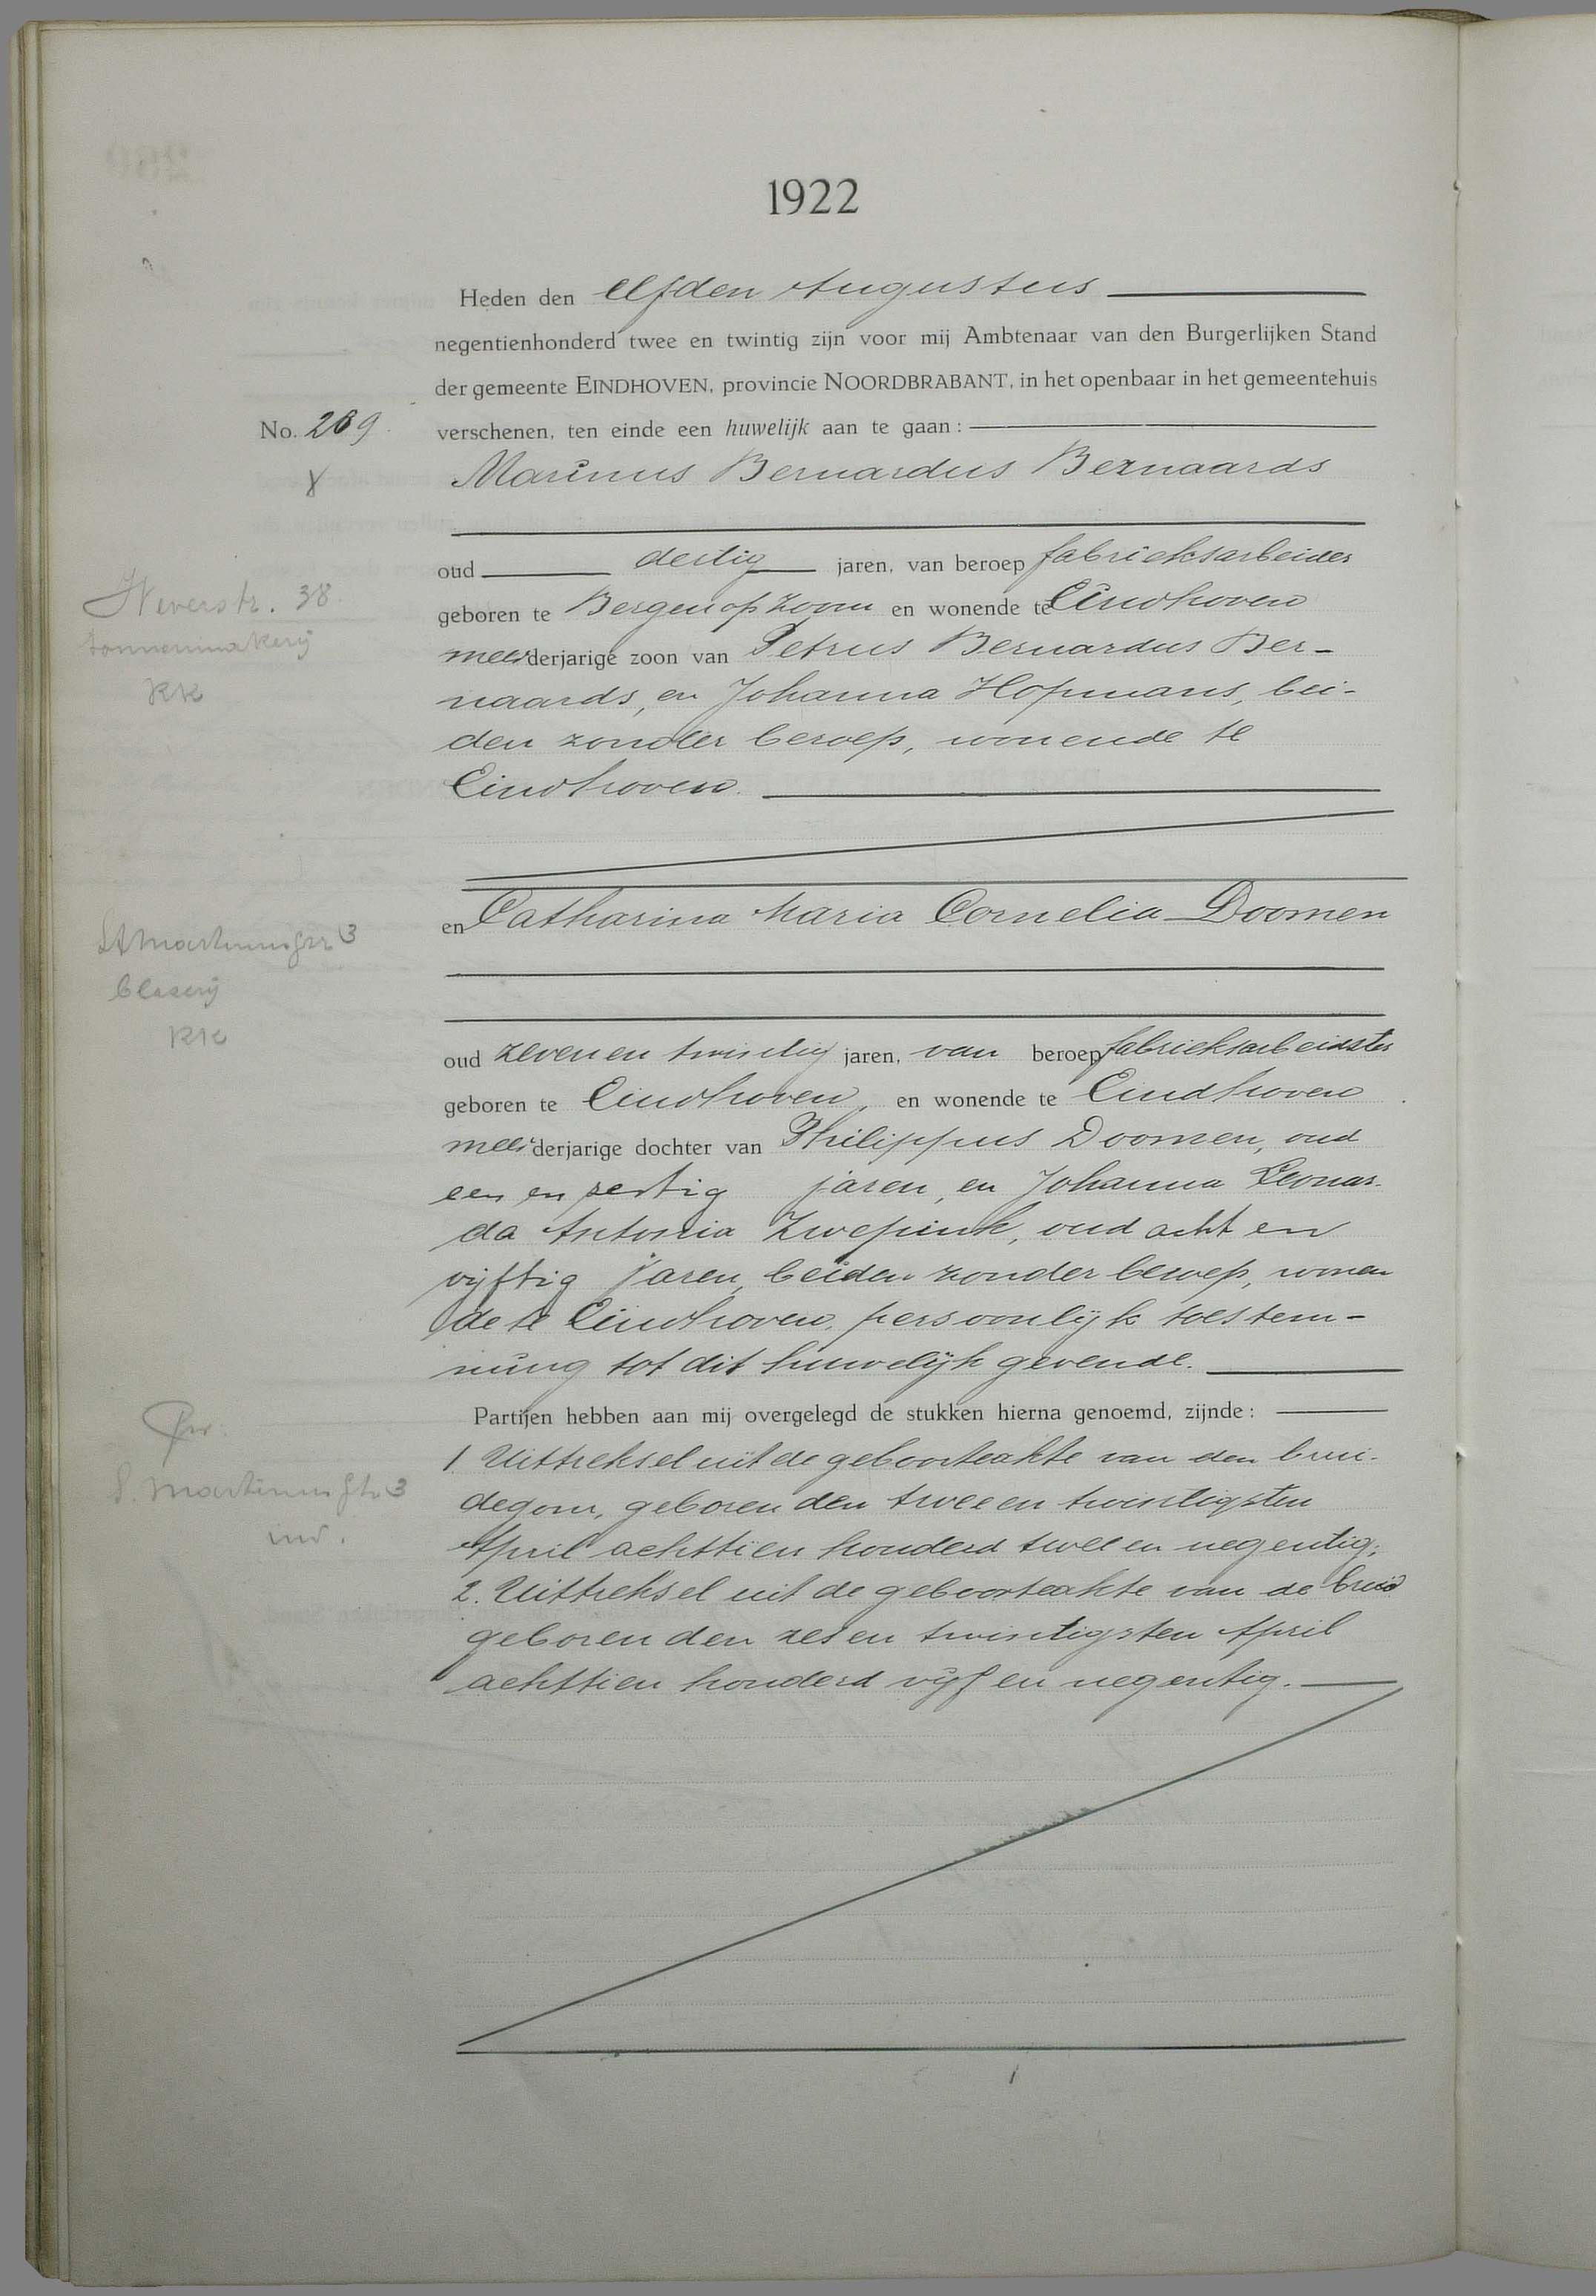 1922
Heden den elfden Augustus
negentienhonderd twee en twintig zijn voor mij Ambtenaar van den Burgerlijken Stand
der gemeente EINDHOVEN, provincie NOORDBRABANT, in het openbaar in het gemeentehuis
No. 269. verschenen, ten einde een huwelijk aan te gaan:
Marinus Bernardus Bernaards
oud dertig jaren, van beroep fabrieksarbeider
geboren te Bergen op Zoom en wonende te Eindhoven
meerderjarige zoon van Petrus Bernardus Ber-
naards, en Johanna Hopmans, bei-
den zonder beroep, wonende te
Eindhoven.
Weverstr. 38.
tonnenmakerij
RK
en Catharina Maria Cornelia Doomen
St Martinusstr 3
Blazerij
RK
oud zeven en twintig jaren, van beroep fabrieksarbeidster
geboren te Eindhoven, en wonende te Eindhoven
meerderjarige dochter van Philippus Doomen, oud
een en zestig jaren, en Johanna Leonar-
da Antonia Zwepink, oud acht en
vijftig jaren, beiden zonder beroep, wonen
de te Eindhoven, persoonlijk toestem-
ming tot dit huwelijk gevende.
Partijen hebben aan mij overgelegd de stukken hierna genoemd, zijnde:
1. Uittreksel uit de geboorteakte van den brui-
degom, geboren den twee en twintigsten
April achttien honderd twee en negentig;
2. Uittreksel uit de geboorteakte van de bruid
geboren den zes en twintigsten April
achttien honderd vijf en negentig.
S. Martinusstr 3